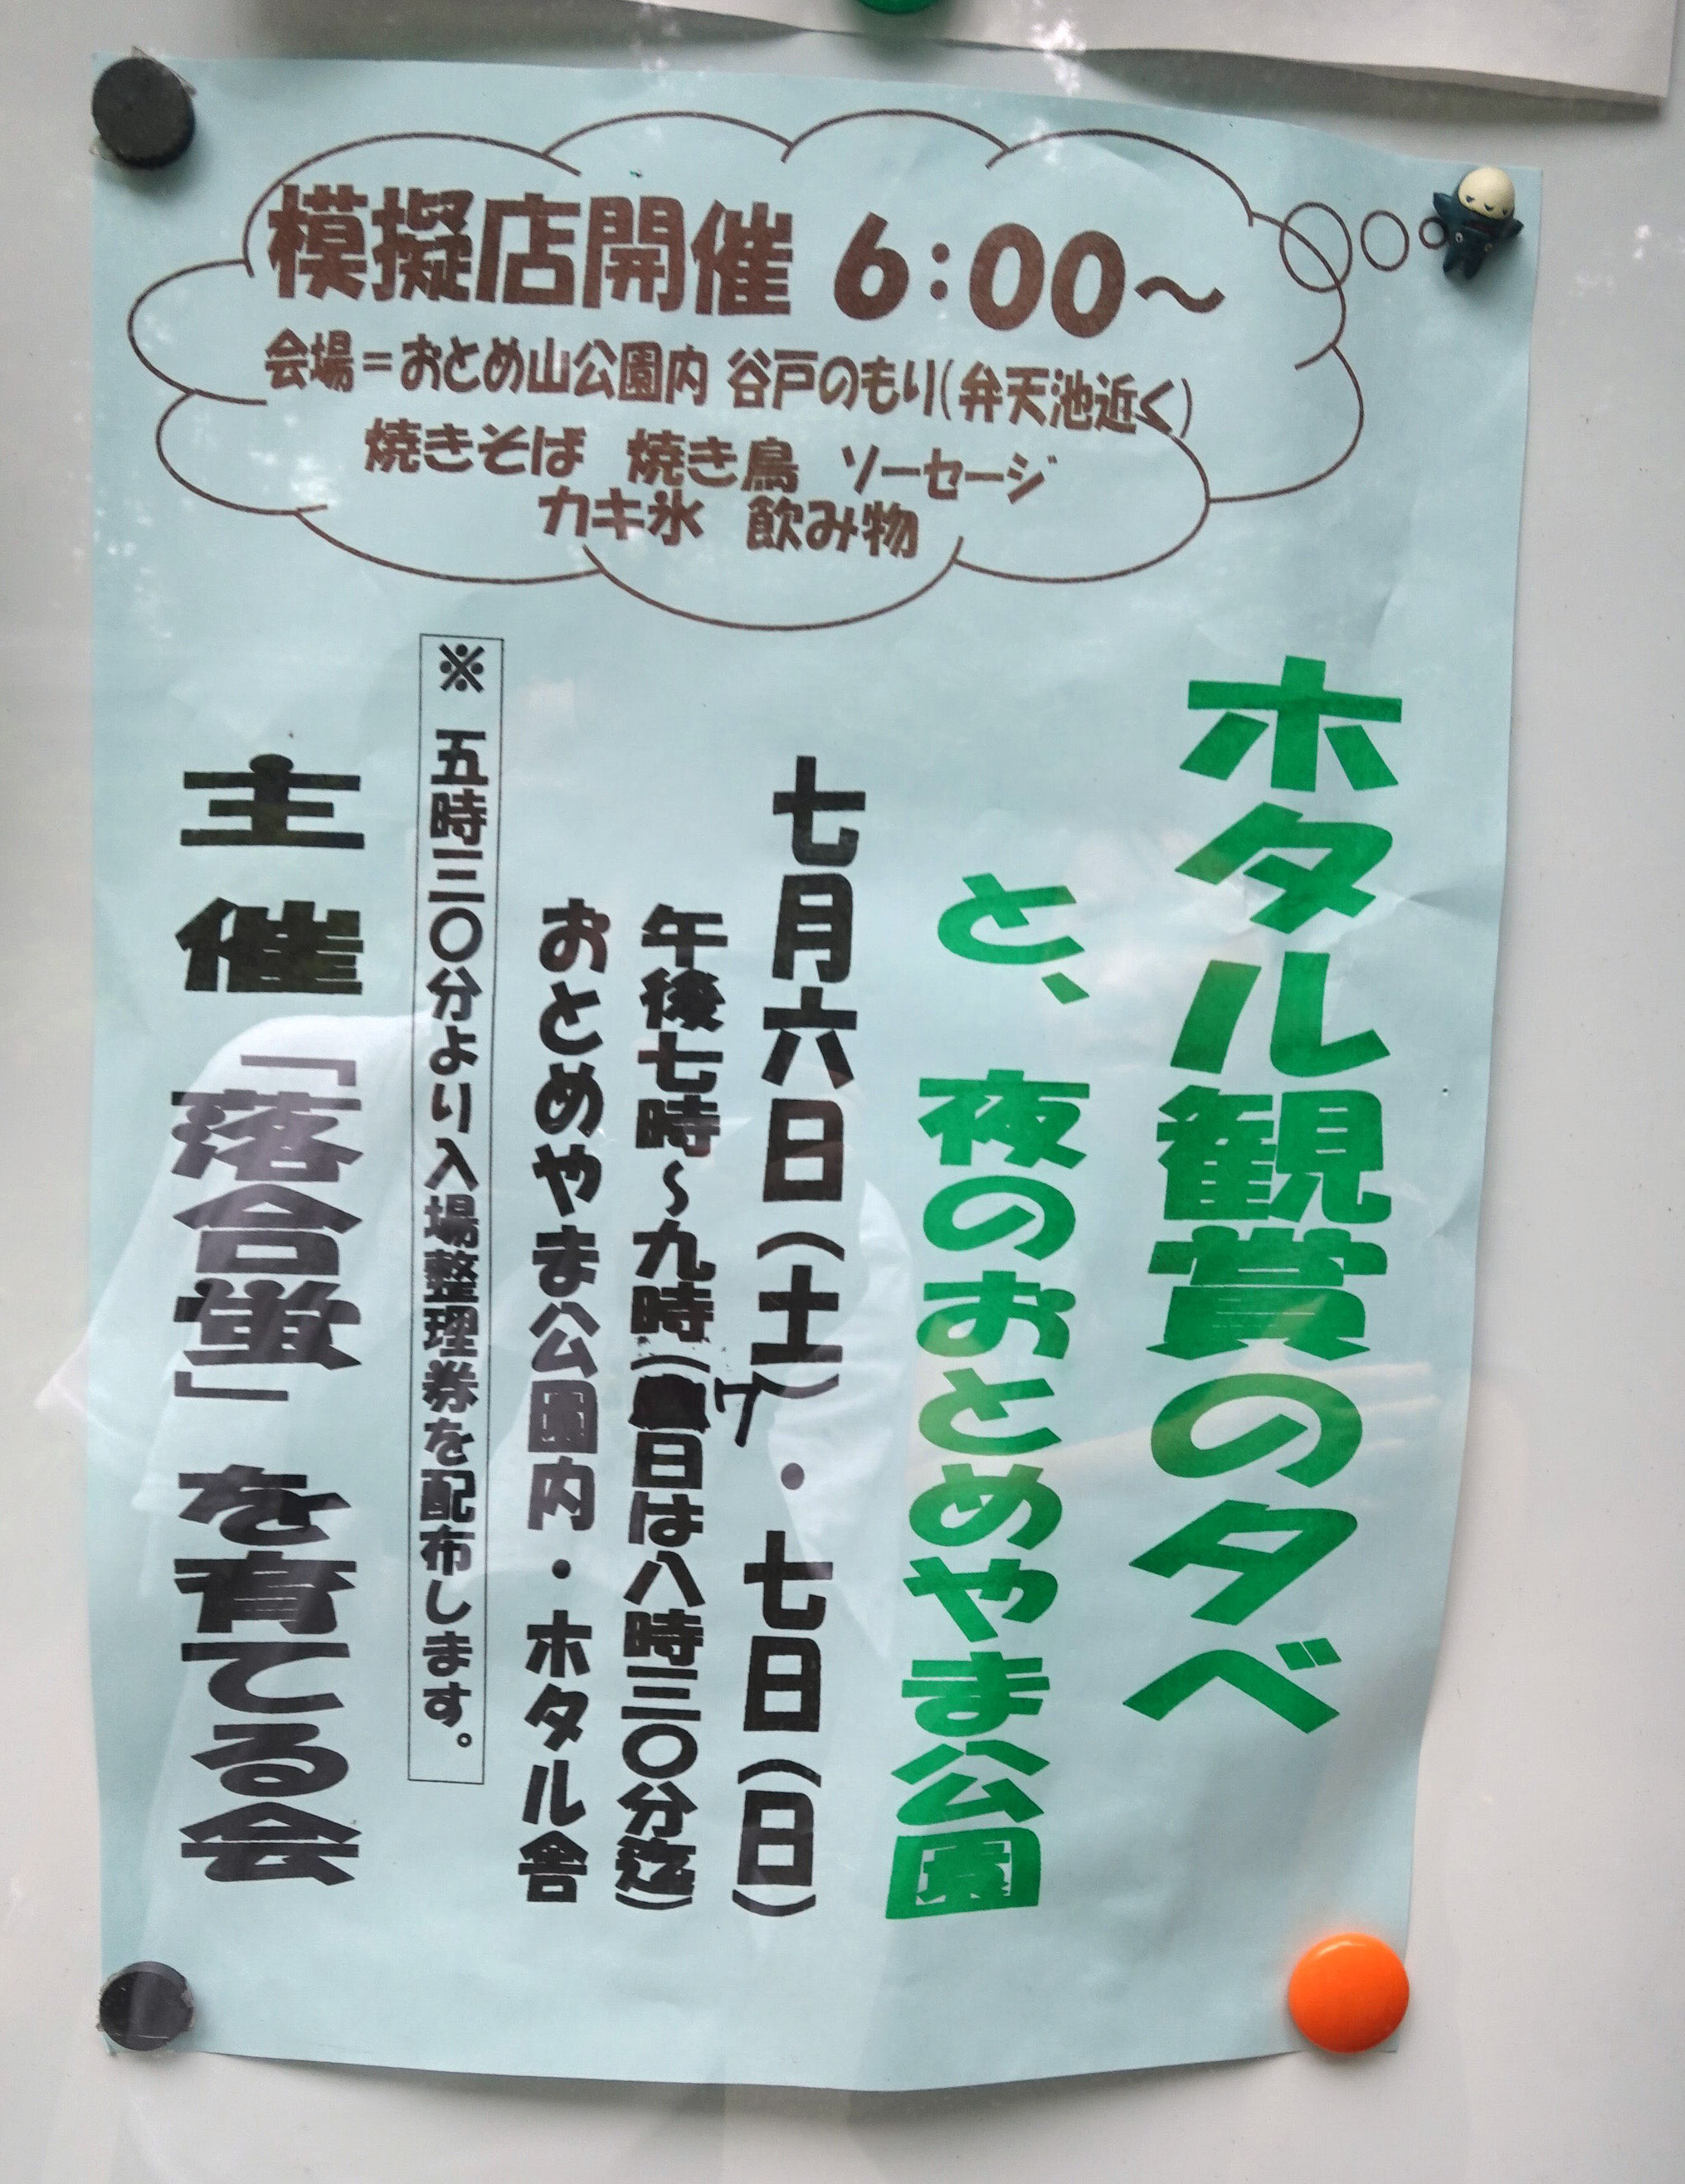 模擬店開催 6:00～
会場=おとめ山公園内 谷戸のもり(弁天池近く)
焼きそば 焼き鳥 ソーセージ
カキ氷 飲み物
ホタル観賞の夕べ
と、夜のおとめやま公園
七月六日(土)・七日(日)
午後七時～九時(7日は八時三〇分迄)
おとめやま公園内・ホタル舎
※ 五時三〇分より入場整理券を配布します。
主催「落合蛍」を育てる会